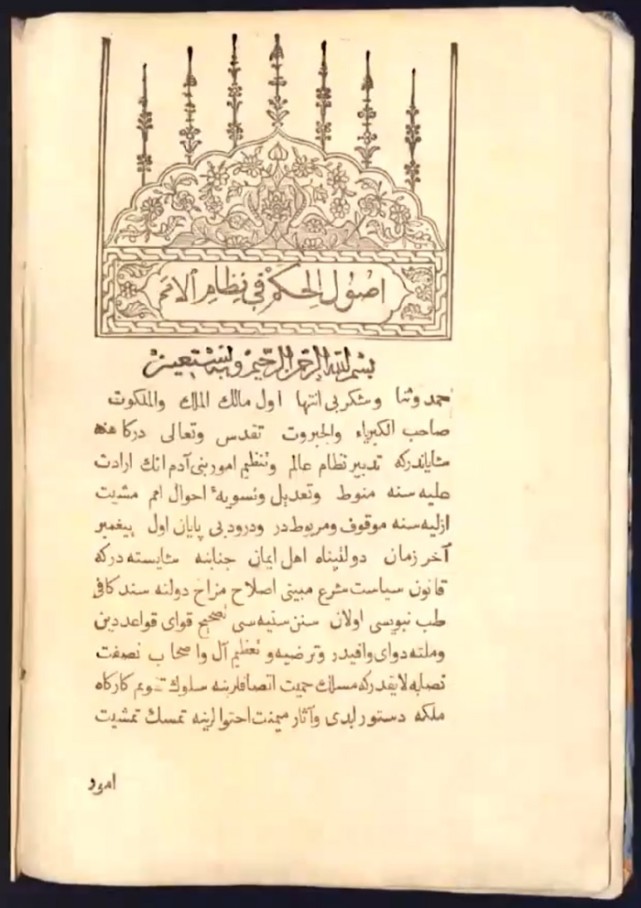 اصول الحكم في نظام الامم
بسم الله الرحمن الرحيم وبه نستعين
حمد وثنا وشكر بى انتها اول مالك الملك والملكوت
صاحب الكبرياء والجبروت تقدس وتعالى دركاهنه
شاياندركه تدبير نظام عالم وتنظيم امور بنى آدم انك ارادت
عليه سنه منوط وتعديل وتسويهٔ احوال امم مشيت
ازليه سنه موقوف ومربوطدر ودرود بى پايان اول پيغمبر
آخر زمان دولتپناه اهل ايمان جنابنه شايسته دركه
قانون سياست شرع مبينى اصلاح مزاج دولته سند كافى
طب نبويسى اولان سنن سنيه سى تصحيح قواى قواعد دين
وملته دواى وافيدر وترضيه و تعظيم آل واصحاب نصفت
نصابه لايقدركه مسلك حميت اتصافلرينه سلوك تقويم كاركاه
ملكه دستور ابدى وآثار ميمنت احتوالرينه تمسك تمشيت
امور